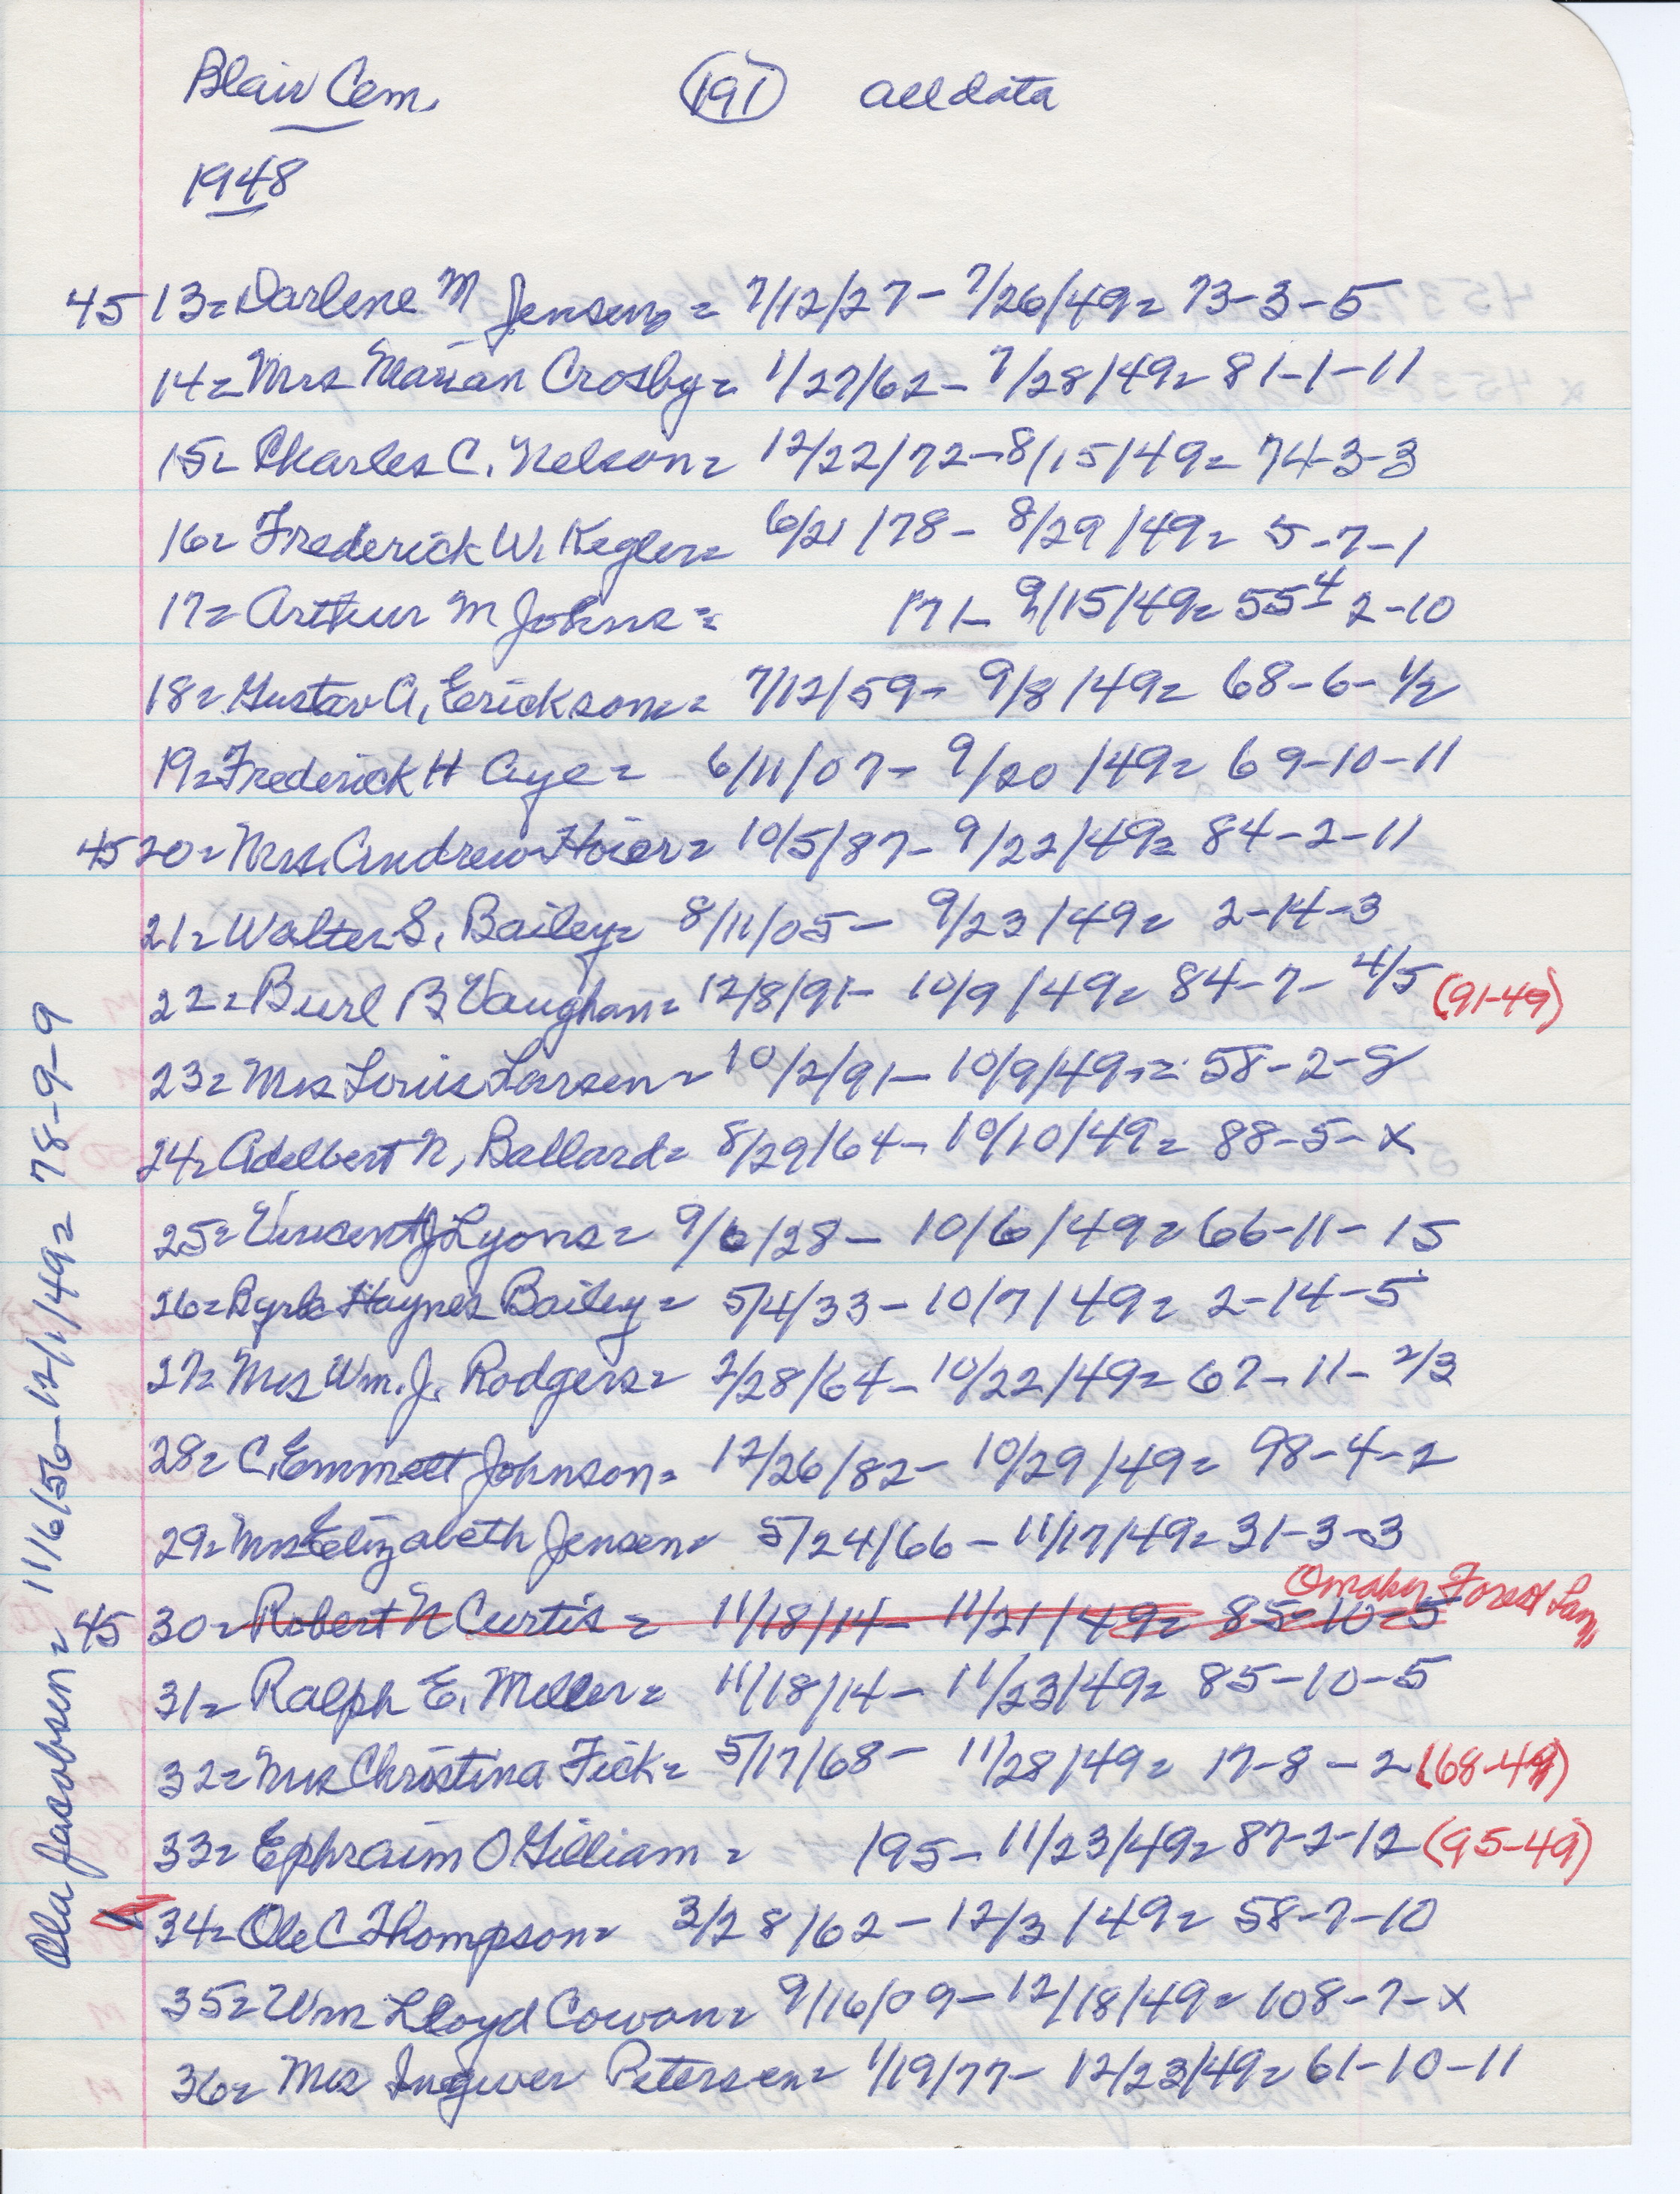 Blair Cem. (191) all data
1948
4513= Darlene M Jensen = 7/12/27 - 7/26/49 = 73-3-5
14= Mrs Marian Crosby = 1/27/62 - 7/28/49 = 81-1-11
15= Charles C. Nelson = 12/22/72 - 8/15/49 = 74-3-3
16= Frederick W. Kegler = 6/21/78 - 8/29/49 = 5-7-1
17= Arthur M Johns = 171- 9/15/49 = 55 4 2-10
18= Gustav A. Erickson = 7/12/59 - 9/8/49 = 68-6-1/2
19= Frederick H Aye = 6/11/07 - 9/20/49 = 69-10-11
4520= Mrs. Andrew Hoier = 10/5/87 - 9/22/49 = 84-2-11
21= Walter S. Bailey = 8/11/05 - 9/23/49 = 2-14-3
22= Burl B Vaughan = 12/8/91 - 10/9/49 = 84-7-4/5 (91-49)
23= Mrs Louis Larsen = 10/2/91 - 10/9/49 = 58-2-8
24= Adelbert N, Ballard = 8/29/64 - 10/10/49 = 88-5-x
25= Vincent J Lyons = 9/6/28 - 10/6/49 = 66-11-15
26= Haynes Bailey = 5/4/33 - 10/7/49 = 2-14-5
27= Mrs Wm. J. Rodgers = 2/28/64 - 10/22/49 = 67-11-2/3
28= C. Emmett Johnson = 12/26/82 - 10/29/49 = 98-4-2
29= Mrs Elizabeth Jensen = 5/24/66 - 11/17/49 = 31-3-3
Omaha Forest Lawn
4530= Robert N Curtis = 11/18/14 - 11/21/49 = 85-10-5
31= Ralph E. Miller = 11/18/14 - 11/23/49 = 85-10-5
32= Mrs Christina Fick = 5/17/68 - 11/28/49 = 17-8-2 (68-49)
33= Ephraim O Gilliam = 195 - 11/23/49 = 87-2-12 (95-49)
34= Ole C Thompson = 3/28/62 - 12/3/49 = 58-7-10
35= Wm Lloyd Cowan = 9/16/09 - 12/18/49 = 108-7-x
36= Mrs Ingwer Petersen = 1/19/77 - 12/23/49 = 61-10-11
Ola Jacobsen = 11/6/56 - 12/1/49 = 78-9-9